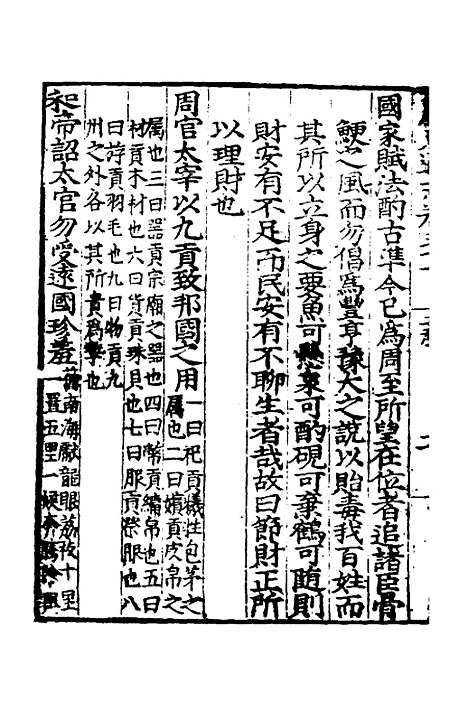 國家賦法酌古準今已爲周至所望在位者追諸臣骨
鯁之風而勿倡爲豐亨豫大之說以貽毒我百姓而
其所以立身之要魚可懸菜可酌硯可棄鶴可隨則
財安有不足而民安有不聊生者哉故曰節財正所
以理財也
周官太宰以九貢致邦國之用一曰祀貢犧牲包茅之
屬也二曰嬪貢皮帛之
屬也三曰器貢宗廟之器也四曰幣貢繡帛也五曰
材貢木材也六曰貨貢珠貝也七曰服貢祭服也八
曰斿貢羽毛也九曰物貢九
州之外各以其所貴爲摯也
和帝詔太官勿受遠國珍羞舊南海獻龍眼荔枝十里
一置五里一